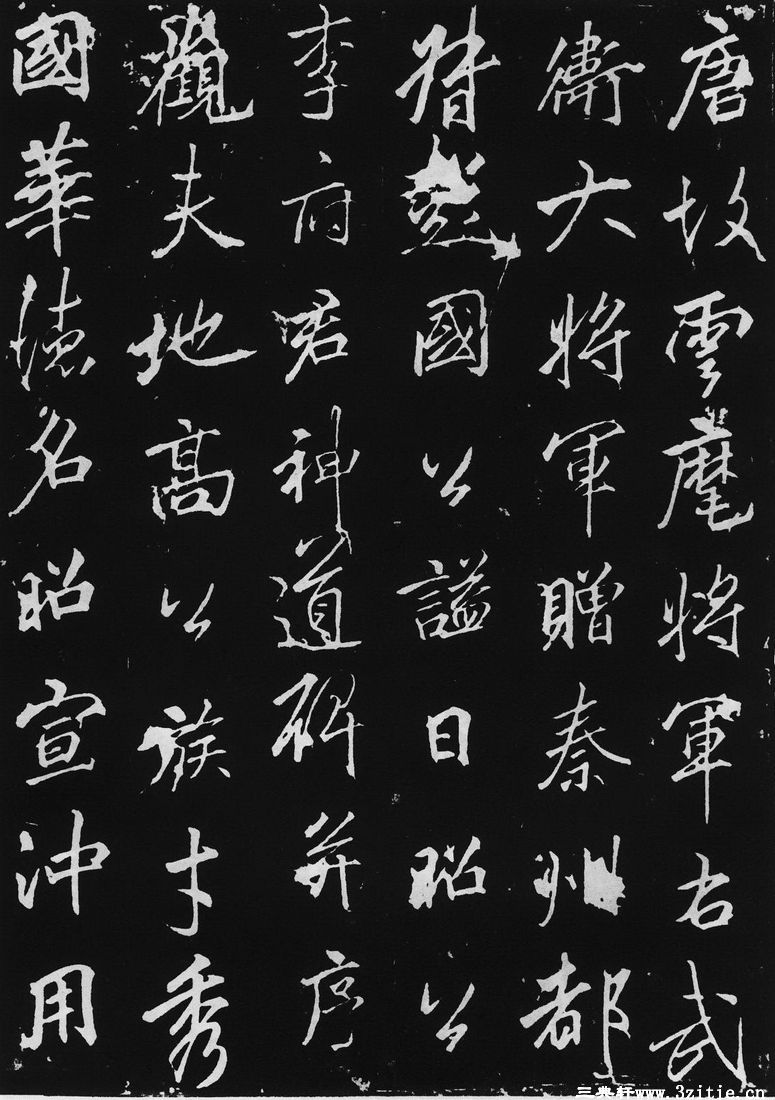 唐故雲麾將軍右武
衛大將軍贈秦州都
督彭國公謚曰昭公
李府君神道碑并序
觀夫地高公族才秀
國華德名昭宣沖用
三典轩www.3zitie.cn